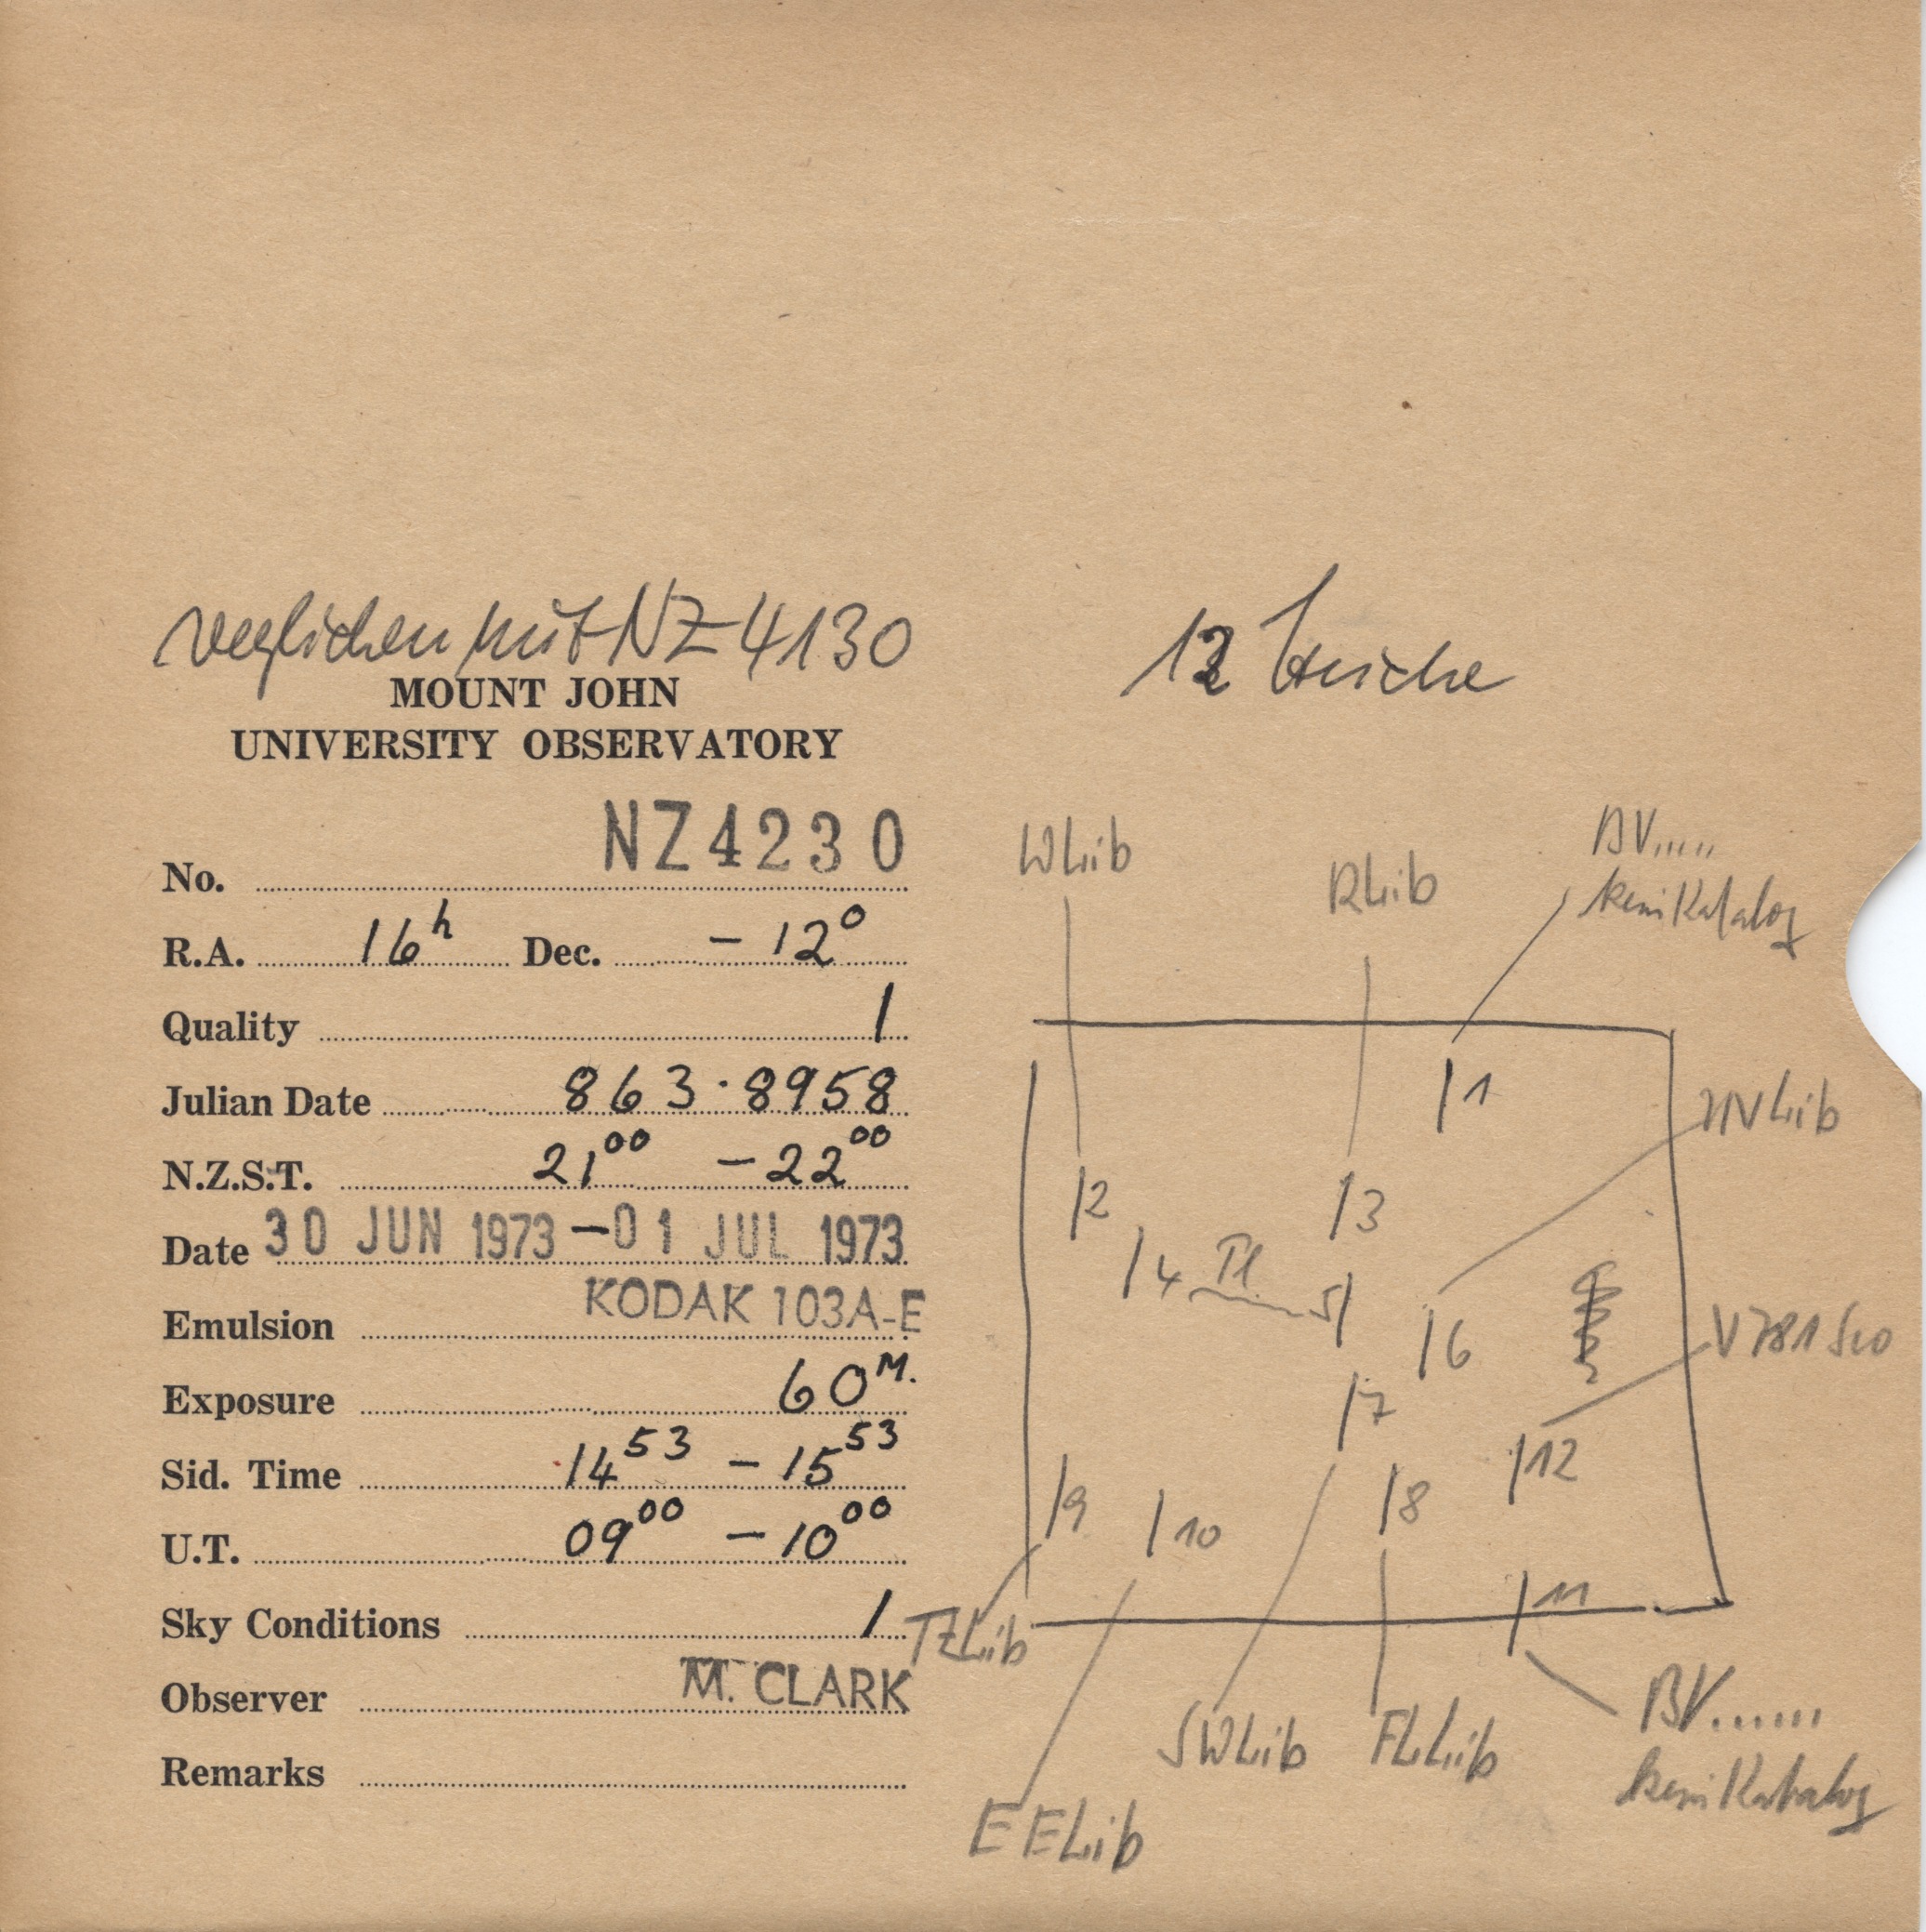 verglichen mit NZ 4130
12 Striche
MOUNT JOHN
UNIVERSITY OBSERVATORY
No. NZ4230
R.A. 16h Dec. – 12°
Quality 1
Julian Date 863·8958
N.Z.S.T. 21 00 – 22 00
Date 30 JUN 1973 – 01 JUL 1973
Emulsion KODAK 103A-E
Exposure 60 M.
Sid. Time 14 53 – 15 53
U.T. 09 00 – 10 00
Sky Conditions 1
Observer M. CLARK
Remarks
W Lib
R Lib
BV.....
kein Katalog
1
Lib
2
3
4 Pl 5
6
V781 Sco
7
12
9
10
8
11
TZ Lib
SW Lib
FL Lib
BV......
kein Katalog
EE Lib